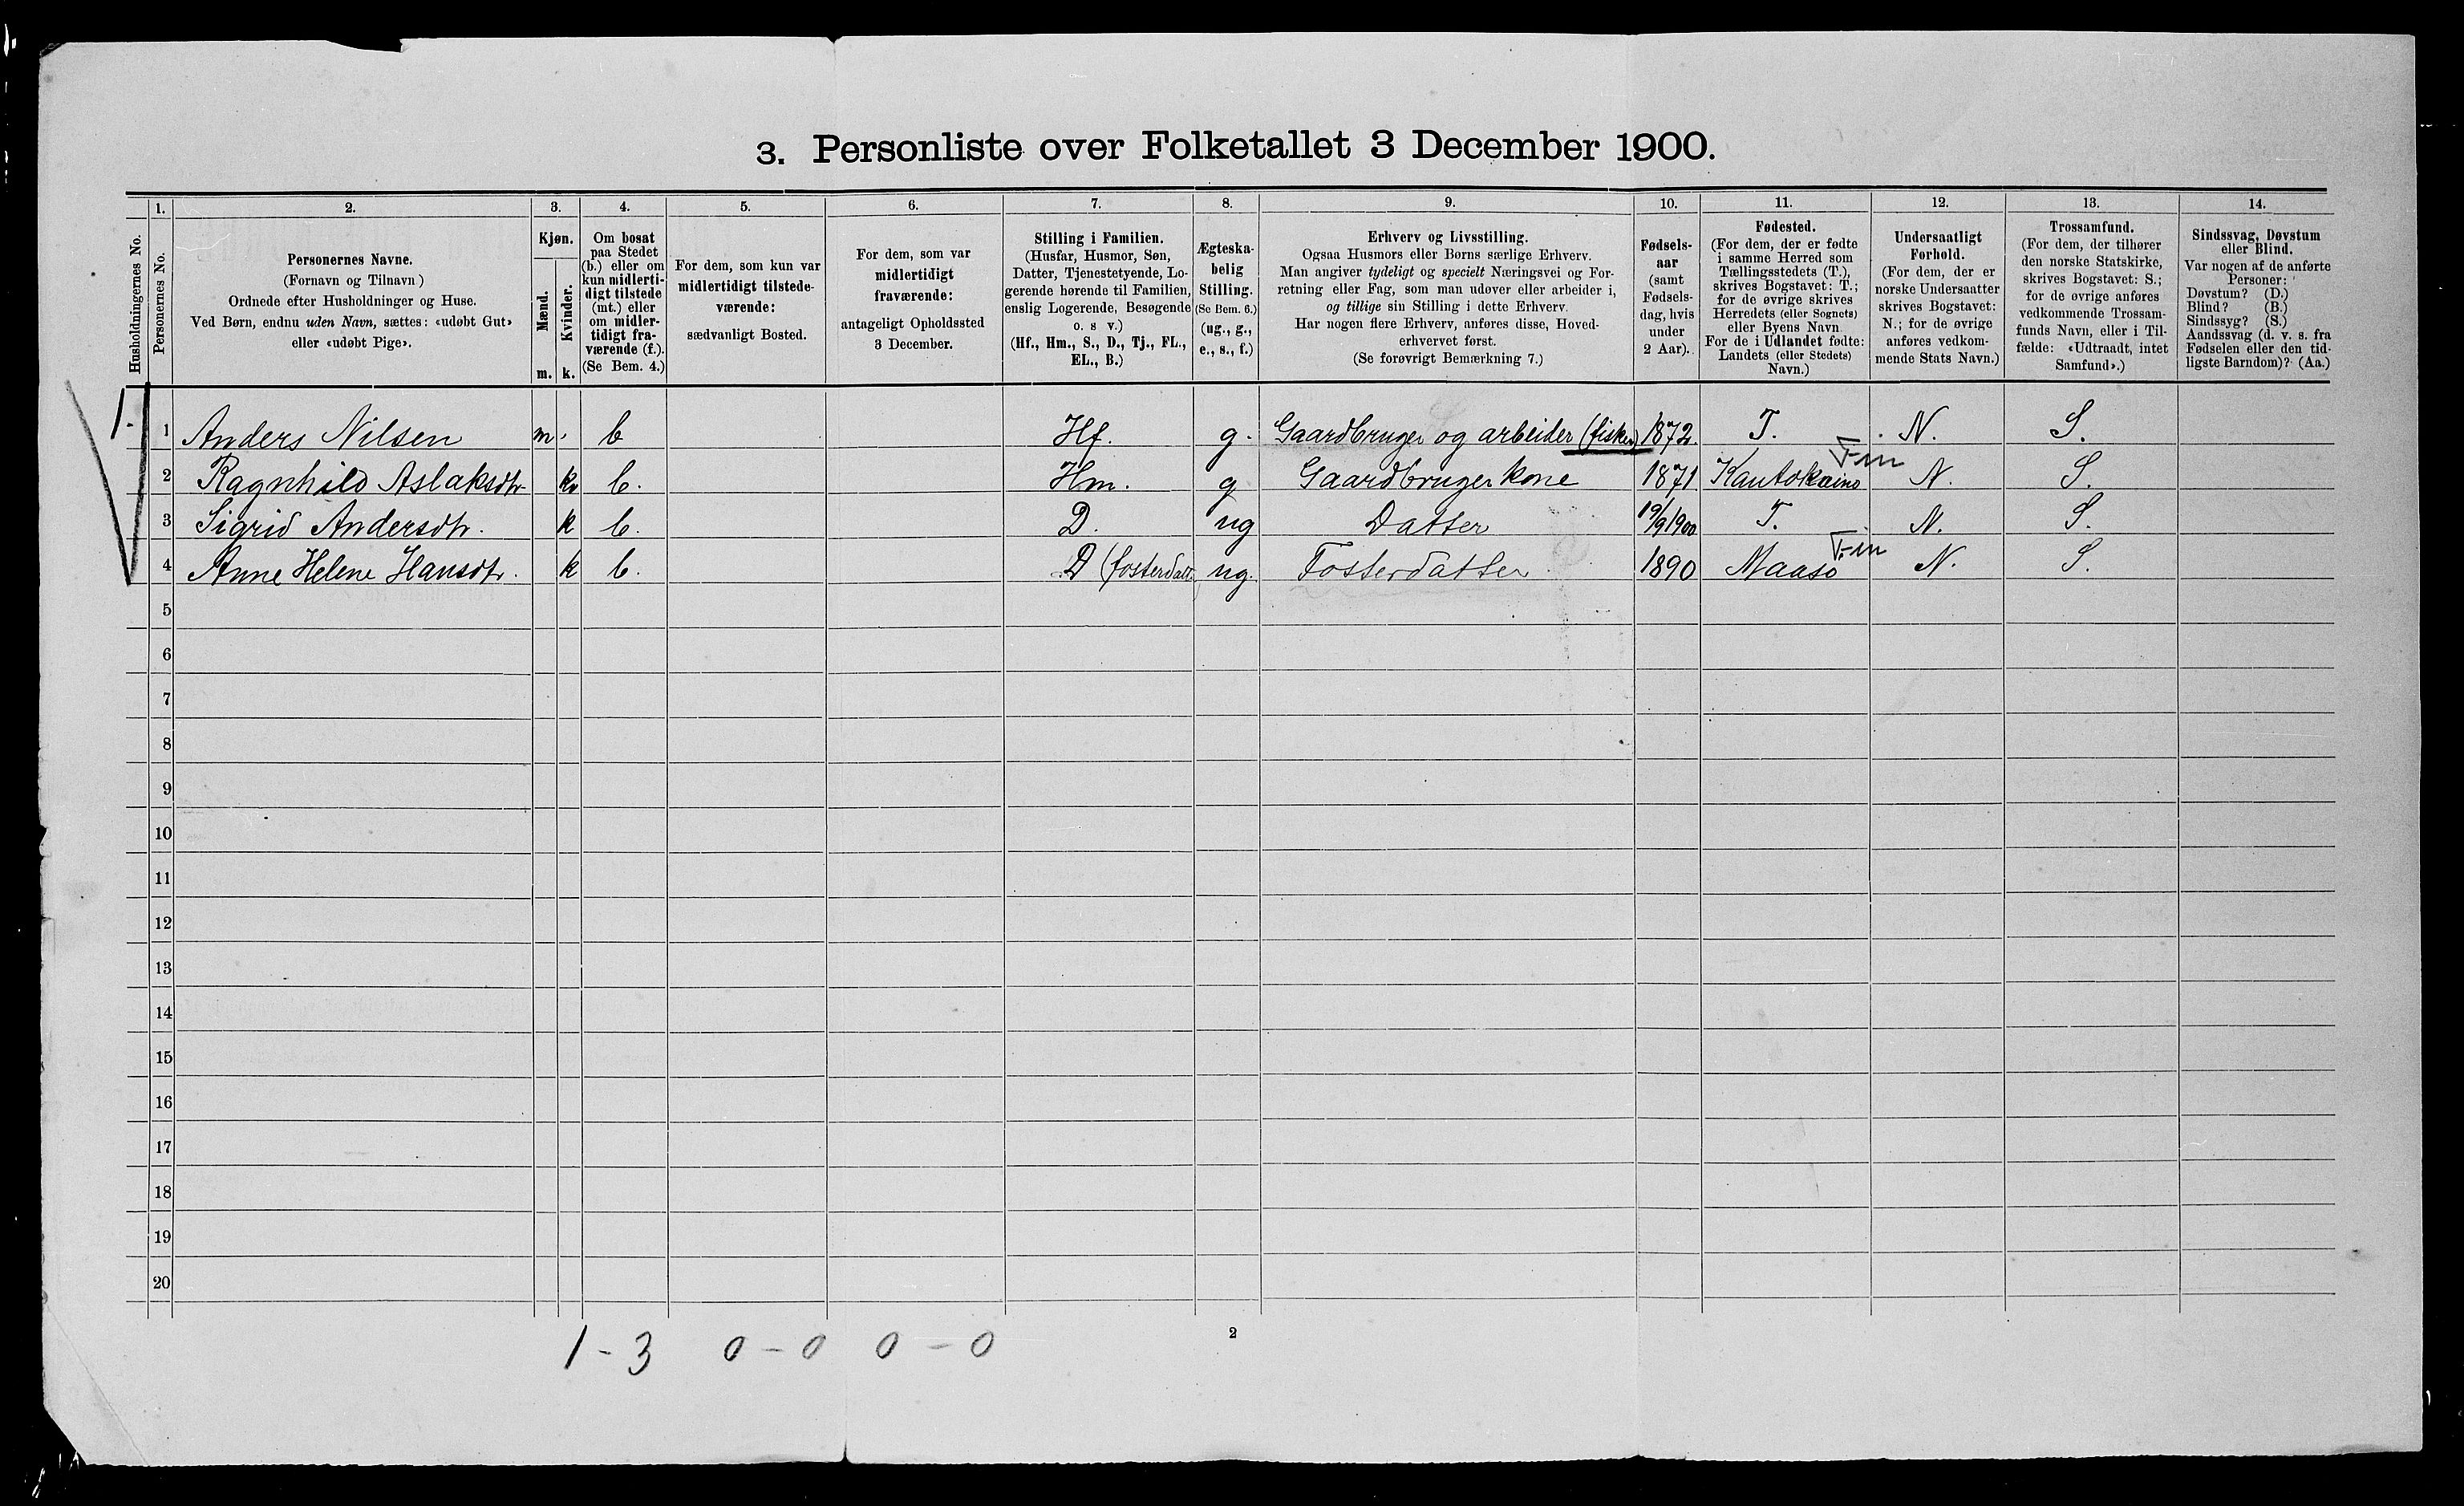 3. Personliste over Folketallet 3 December 1900.
1. 2. 3. 4. 5. 6. 7. 8. 9. 10. 11. 12. 13. 14.
Husholdningernes No.
Personernes No.
Personernes Navne.
(Fornavn og Tilnavn)
Ordnede efter Husholdninger og Huse.
Ved Børn, endnu uden Navn, sættes: «udøbt Gut»
eller «udøbt Pige».
Kjøn.
Mænd.
Kvinder.
m. k.
Om bosat
paa Stedet
(b.) eller om
kun midlerti-
digt tilstede
(mt.) eller
om midler-
tidigt fra-
værende (f.).
(Se Bem. 4.)
For dem, som kun var
midlertidigt tilstede-
værende:
sædvanligt Bosted.
For dem, som var
midlertidigt
fraværende:
antageligt Opholdssted
3 December.
Stilling i Familien.
(Husfar, Husmor, Søn,
Datter, Tjenestetyende, Lo-
gerende hørende til Familien,
enslig Logerende, Besøgende
o. s v.)
(Hf., Hm., S., D., Tj., FL.,
EL., B.)
Ægteska-
belig
Stilling.
(Se Bem. 6.)
(ug., g.,
e., s., f.)
Erhverv og Livsstilling.
Ogsaa Husmors eller Børns særlige Erhverv.
Man angiver tydeligt og specielt Næringsvei og For-
retning eller Fag, som man udøver eller arbeider i,
og tillige sin Stilling i dette Erhverv.
Har nogen flere Erhverv, anføres disse, Hoved-
erhvervet først.
(Se forøvrigt Bemærkning 7.)
Fødsels-
aar
(samt
Fødsels-
dag, hvis
under
2 Aar).
Fødested.
(For dem, der er fødte
i samme Herred som
Tællingsstedets (T.),
skrives Bogstavet: T.;
for de øvrige skrives
Herredets (eller Sognets)
eller Byens Navn.
For de i Udlandet fødte:
Landets (eller Stedets)
Navn.)
Undersaatligt
Forhold.
(For dem, der er
norske Undersaatter
skrives Bogstavet:
N.; for de øvrige
anføres vedkom-
mende Stats Navn.)
Trossamfund.
(For dem, der tilhører
den norske Statskirke,
skrives Bogstavet: S.;
for de øvrige anføres
vedkommende Trossam-
funds Navn, eller i Til-
fælde: «Udtraadt, intet
Samfund».)
Sindssvag, Døvstum
eller Blind.
Var nogen af de anførte
Personer:
Døvstum? (D.)
Blind? (B.)
Sindssyg? (S.)
Aandssvag (d. v. s. fra
Fødselen eller den tid-
ligste Barndom)? (Aa.)
1. 1 Anders Nilsen m. b Hf. g. Gaardbruger og arbeider (fisker) 1872. T. N. S.
Fin
2 Ragnhild Aslaksdtr k b. Hm. g Gaardbruger kone 1871 Kautokeino N. S.
3 Sigrid Andersdtr. k b. D. ug Datter 19/9 1900 T. N. S.
Fin
4 Anne Helene Hansdtr. k b. D (fosterdatt. ug. Fosterdatter 1890 Maasø N. S.
5
6
7
8
9
10
11
12
13
14
15
16
17
18
19
20
1 - 3 0 - 0 0 - 0
2